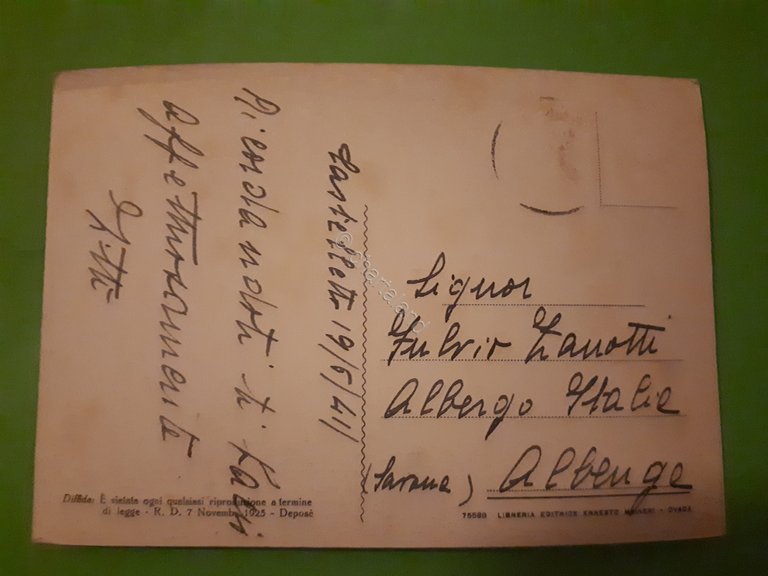 Castelletto 19/6/41
Ricordandoti ti baci
affettuosamente
Signor
Fulvio Zanotti
Albergo Italia
(Savona) Albenga
Diffida: È vietata ogni qualsiasi riproduzione a termine
di legge - R. D. 7 Novembre 1925 - Deposé
75589 LIBRERIA EDITRICE ERNESTO MAINERI - OVADA